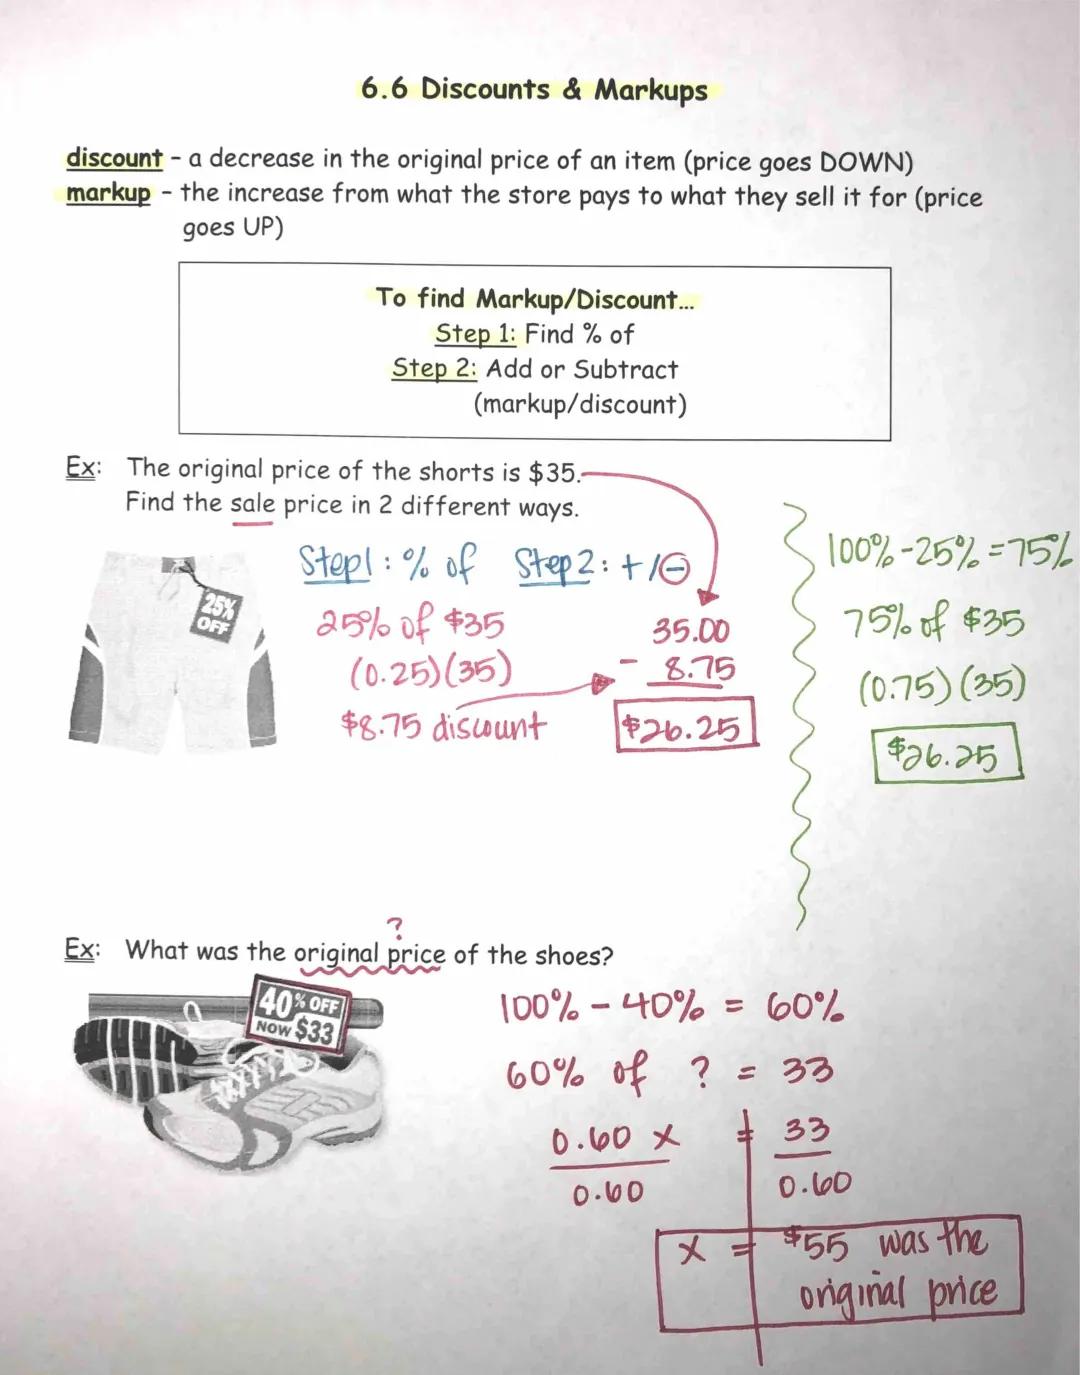 6.6 Discounts & Markups
discount - a decrease in the original price of an item (price goes DOWN)
markup - the increase from what the store pays to what they sell it for (price
goes UP)
To find Markup/Discount...
Step 1: Find % of
Step 2: Add or Subtract
(markup/discount)
Ex: The original price of the shorts is $35.
Find the sale price in 2 different ways.
25%
OFF
Step1: % of
25% of $35
(0.25)(35)
$8.75 discount
Step 2: + / -
35.00
- 8.75
$26.25
100% - 25% = 75%
75% of $35
(0.75)(35)
$26.25
?
Ex: What was the original price of the shoes?
40% OFF
NOW $33
100% - 40% = 60%
60% of ? = 33
0.60 x = 33
0.60 0.60
x = $55 was the
original price